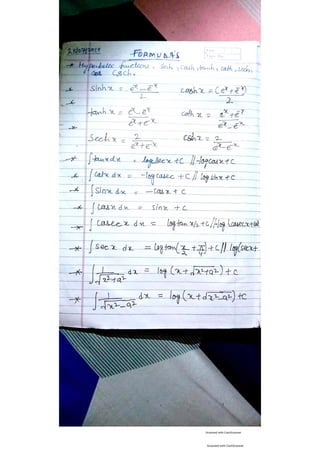 FORMULA'S
→ Hyperbolic functions. Sinh, cosh, tanh, coth, sech,
Csch.
Sinhx = eˣ - e⁻ˣ / 2 coshx = (eˣ + e⁻ˣ) / 2
tanhx = eˣ - e⁻ˣ / eˣ + e⁻ˣ coth x = eˣ + e⁻ˣ / eˣ - e⁻ˣ
Sechx = 2 / eˣ + e⁻ˣ = 2 / eˣ - e⁻ˣ
∫tanx dx = log secx + C // -log cosx + C
∫cotx dx = -log cosec + C // log sinx + C
∫Sinx dx = -cosx + C
∫cosx dx = sinx + C
∫cosecx dx = log tan x/2 + C //-log (cosecx+cot
∫secx dx = log tan(x/2 + π/4) + C // log(secx+
∫ 1/√x²+a² dx = log (x + √x²+a²) + C
∫ 1/√x²-a² dx = log (x + √x²-a²) + C
Scanned with CamScanner
Scanned with CamScanner